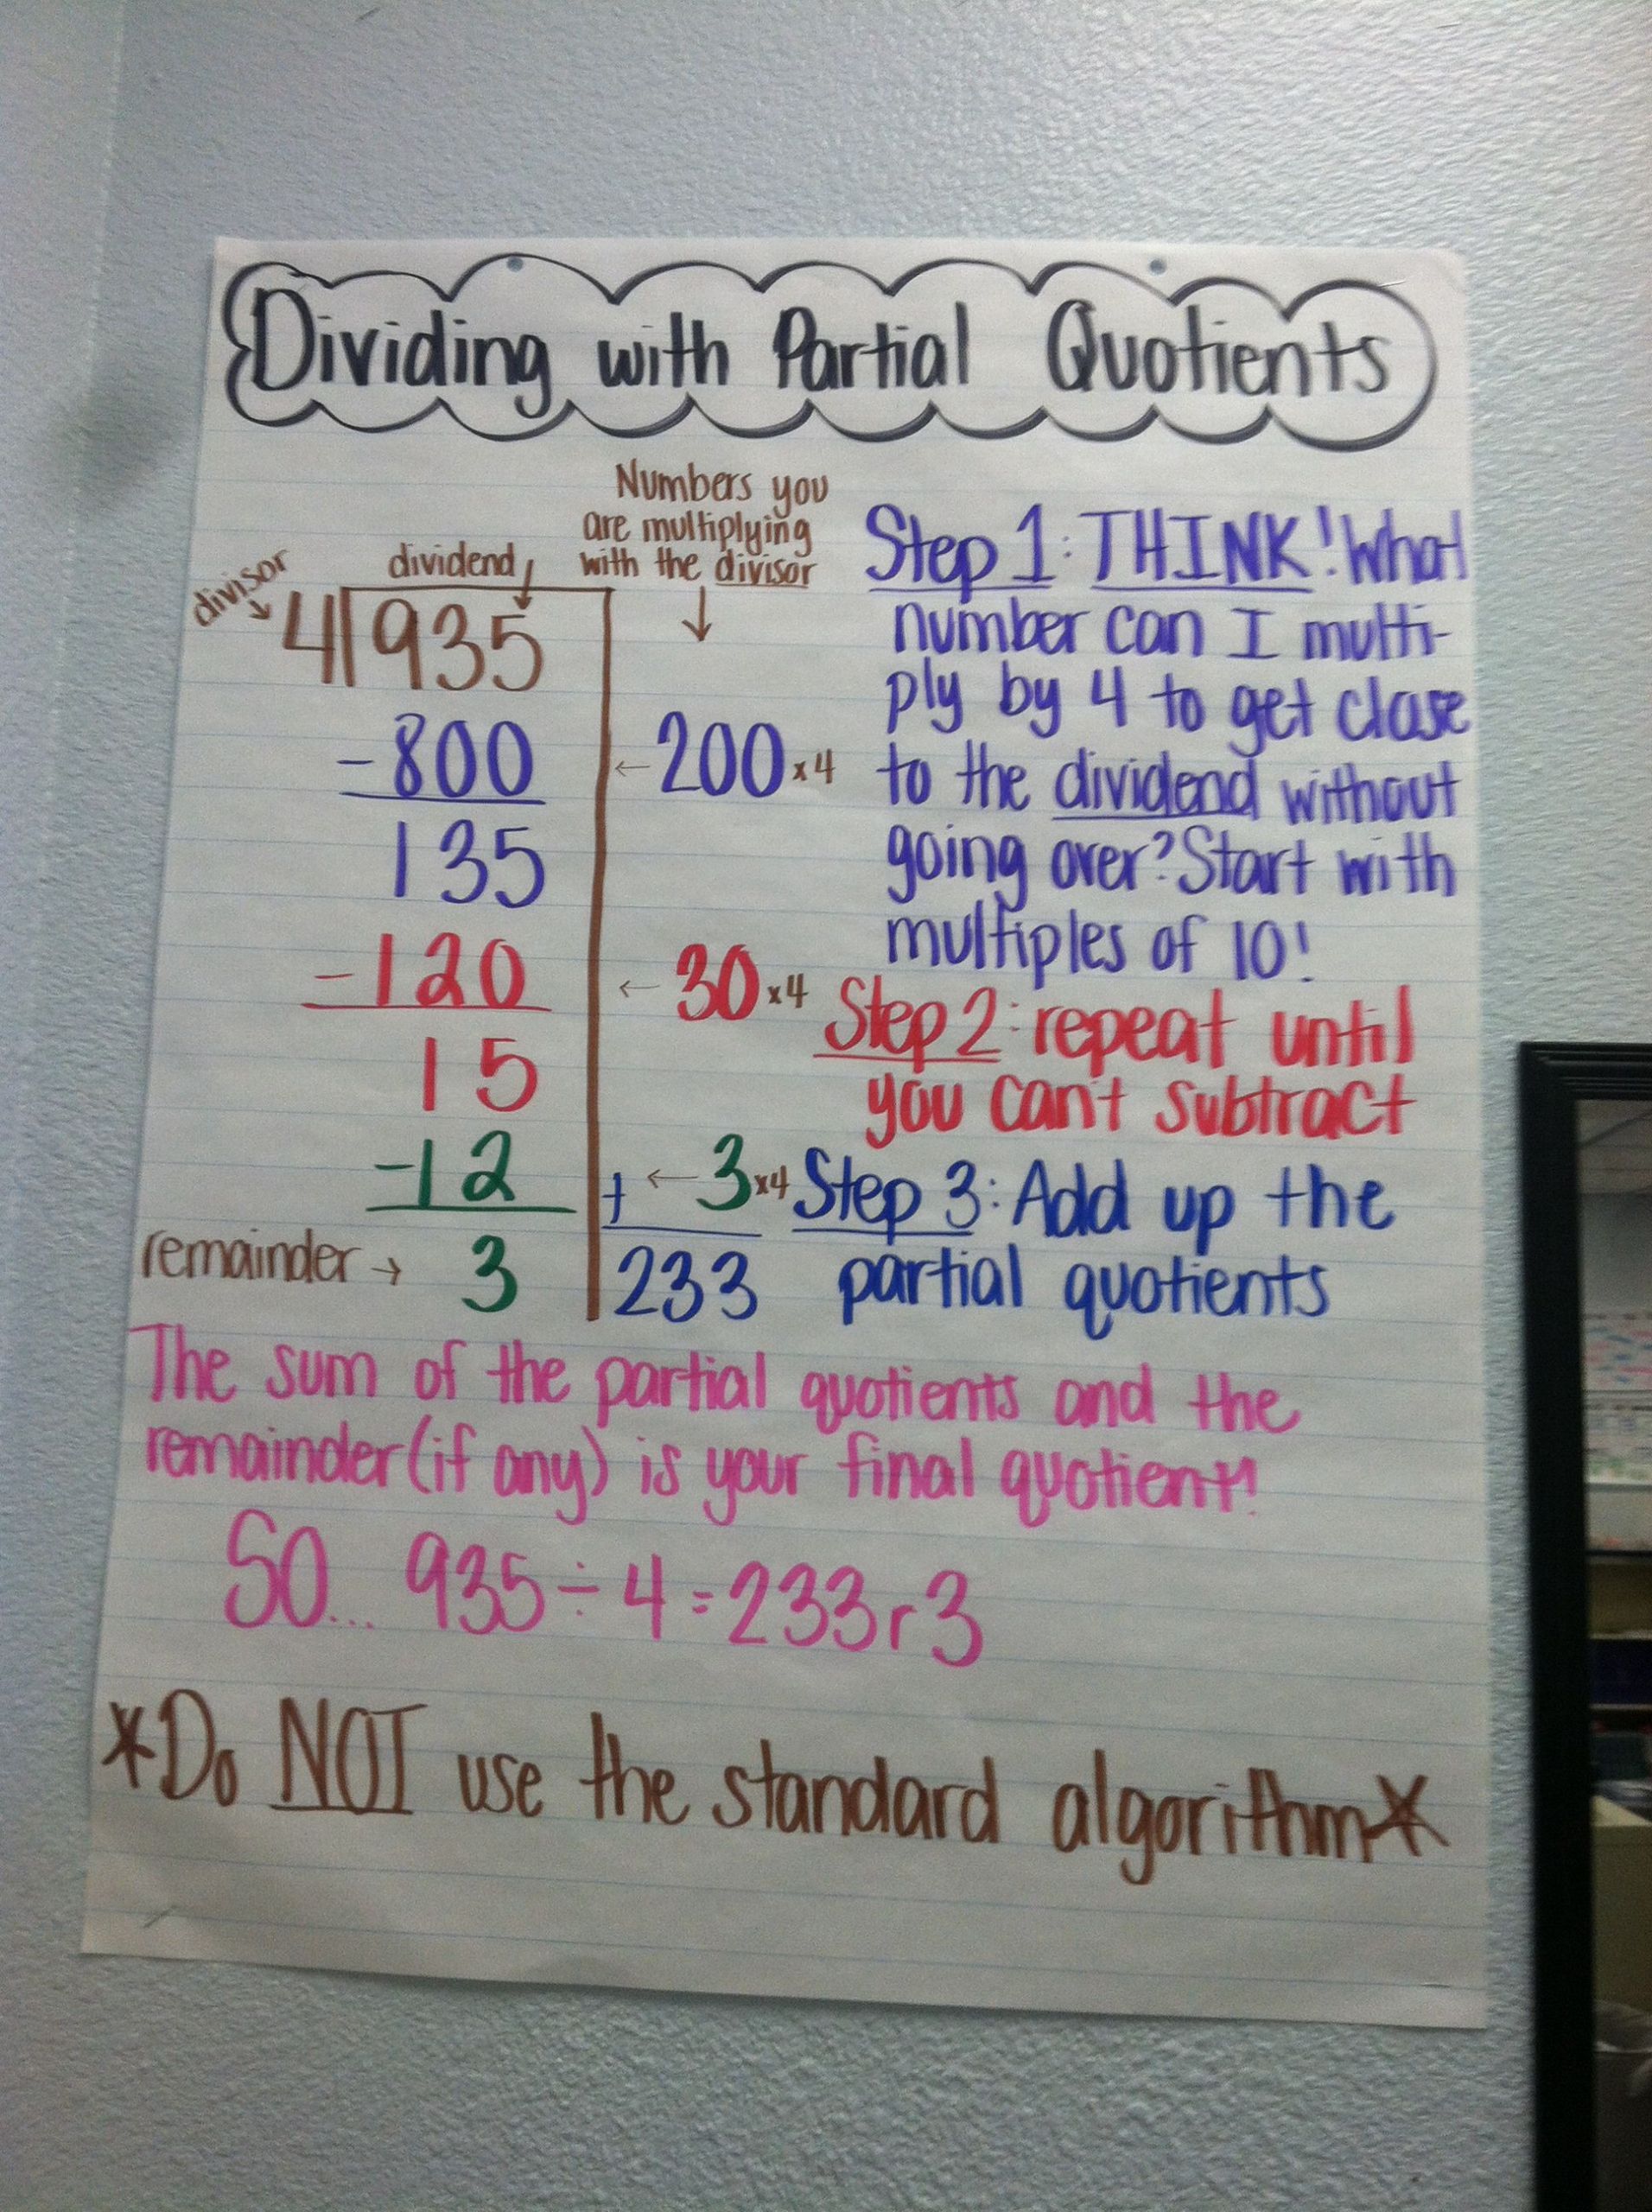 Dividing with Partial Quotients
Numbers you
are multiplying
with the divisor
↓
divisor →
dividend ↓
4)935
-800 ← 200 x4
135
-120 ← 30 x4
15
-12 + ← 3 x4
remainder → 3 233
Step 1: THINK! What
number can I multi-
ply by 4 to get close
to the dividend without
going over? Start with
multiples of 10!
Step 2: repeat until
you can't subtract
Step 3: Add up the
partial quotients
The sum of the partial quotients and the
remainder (if any) is your final quotient!
SO... 935 ÷ 4 = 233 r 3
*Do NOT use the standard algorithm*